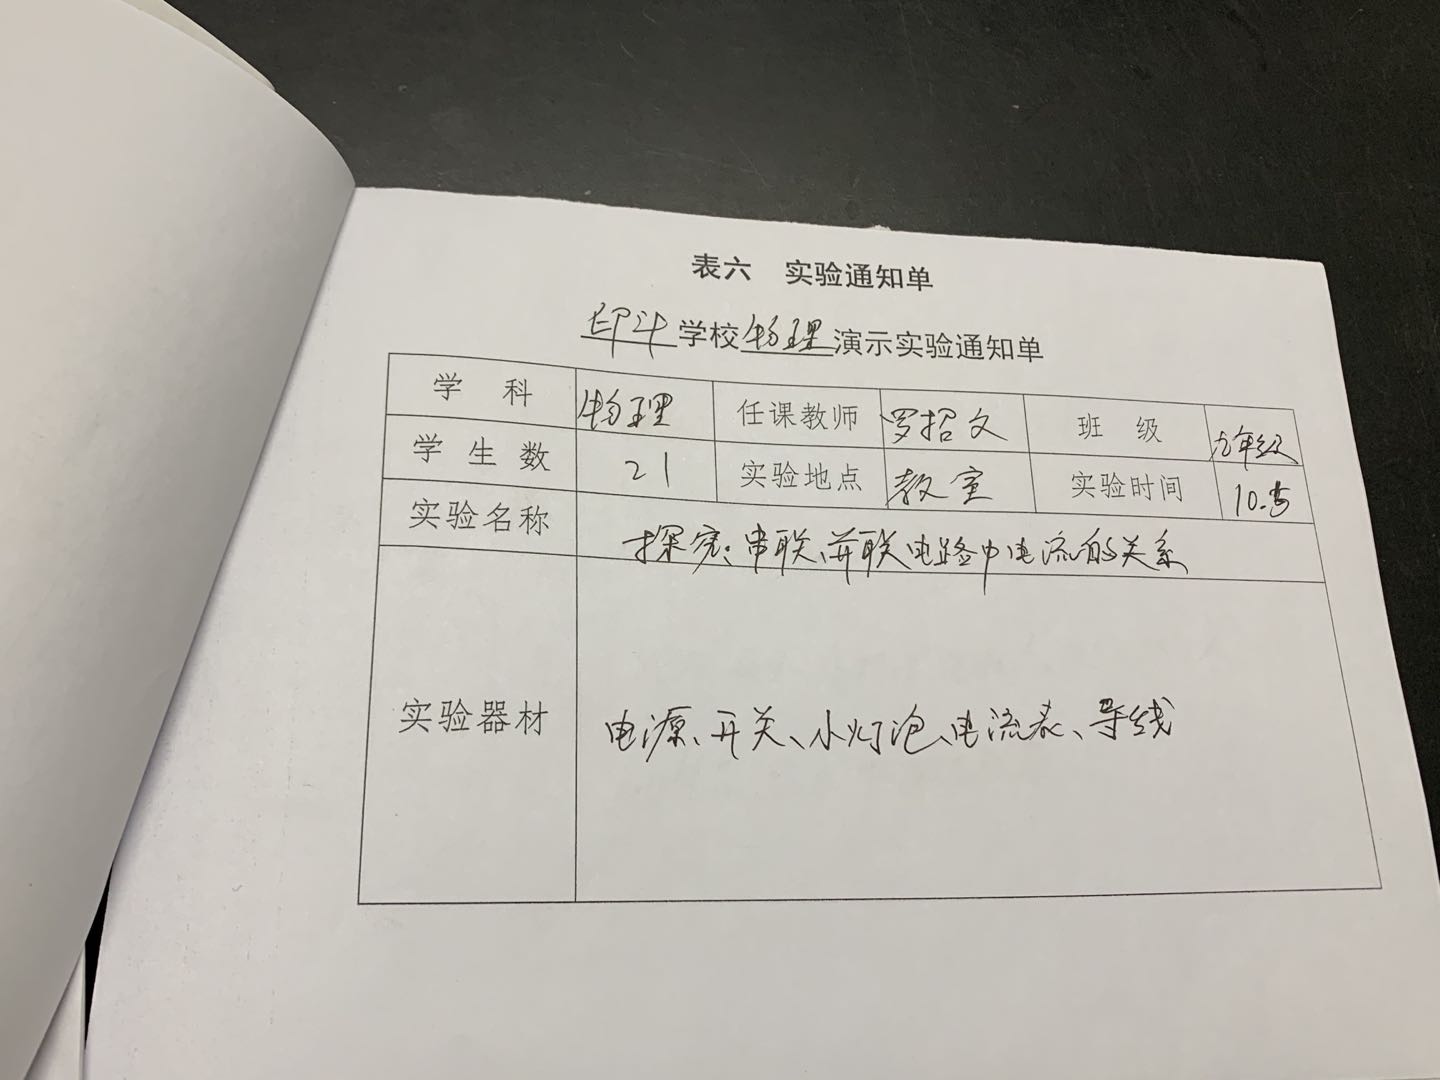 表六 实验通知单
印斗学校物理演示实验通知单
学科 物理 任课教师 罗招文 班级 九年级
学生数 21 实验地点 教室 实验时间 10.5
实验名称 探究:串联、并联电路中电流的关系
实验器材 电源、开关、小灯泡、电流表、导线